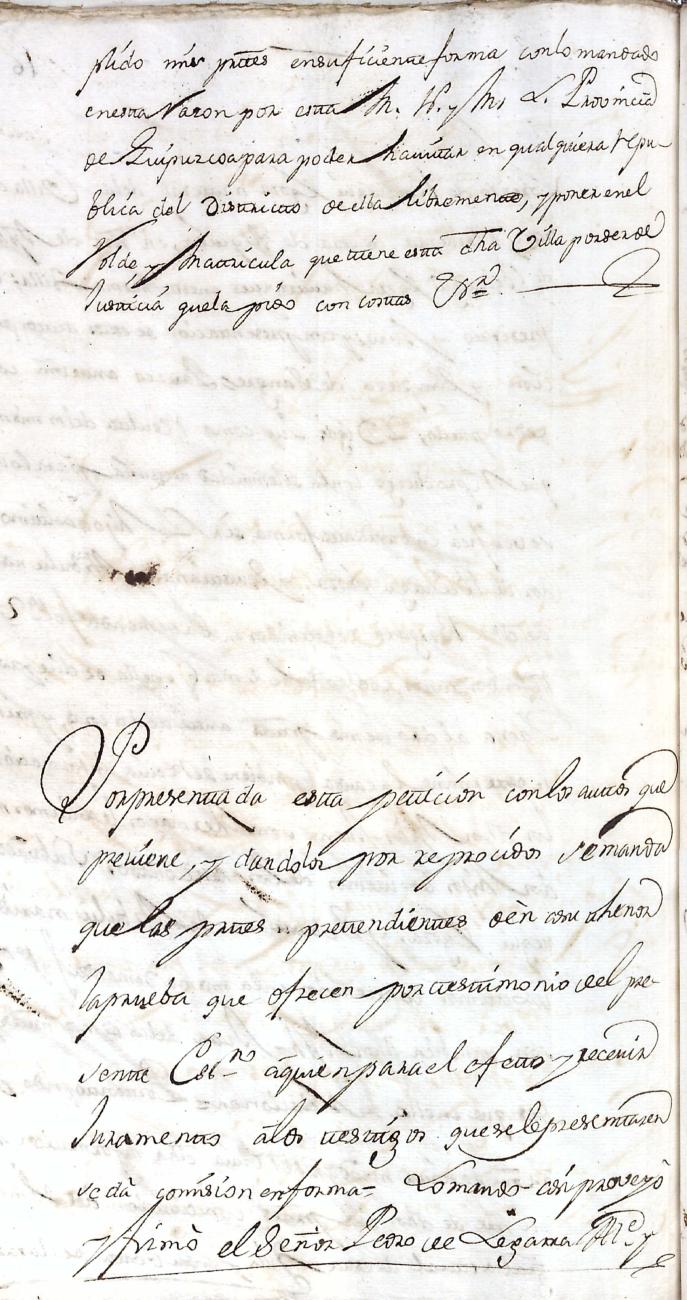 plido mis prttes en suficiente forma con lo mandado
en esta Razon por esta M. N. y M. L. Provincia
de Guipuzcoa para poder havitar en qualquiera Repu-
blica del Districto de ella libremente, y poner en el
Rolde y Matricula que tiene esta dha Villa por ser de
Justicia que la pido con costas
Por presentada esta peticion con los autos que
previene, y dandolos por reprocidos se manda
que las prttes pretendientes dèn con su thenor
la prueba que ofrecen por testimonio del pre-
sente Essno â quien para el efeto y recevir
Juramento â los testigos que se le presentaren
se dà comision en forma = Lo mando asi proveyò
y firmò el Señor Pedro de Lezarra Alce y